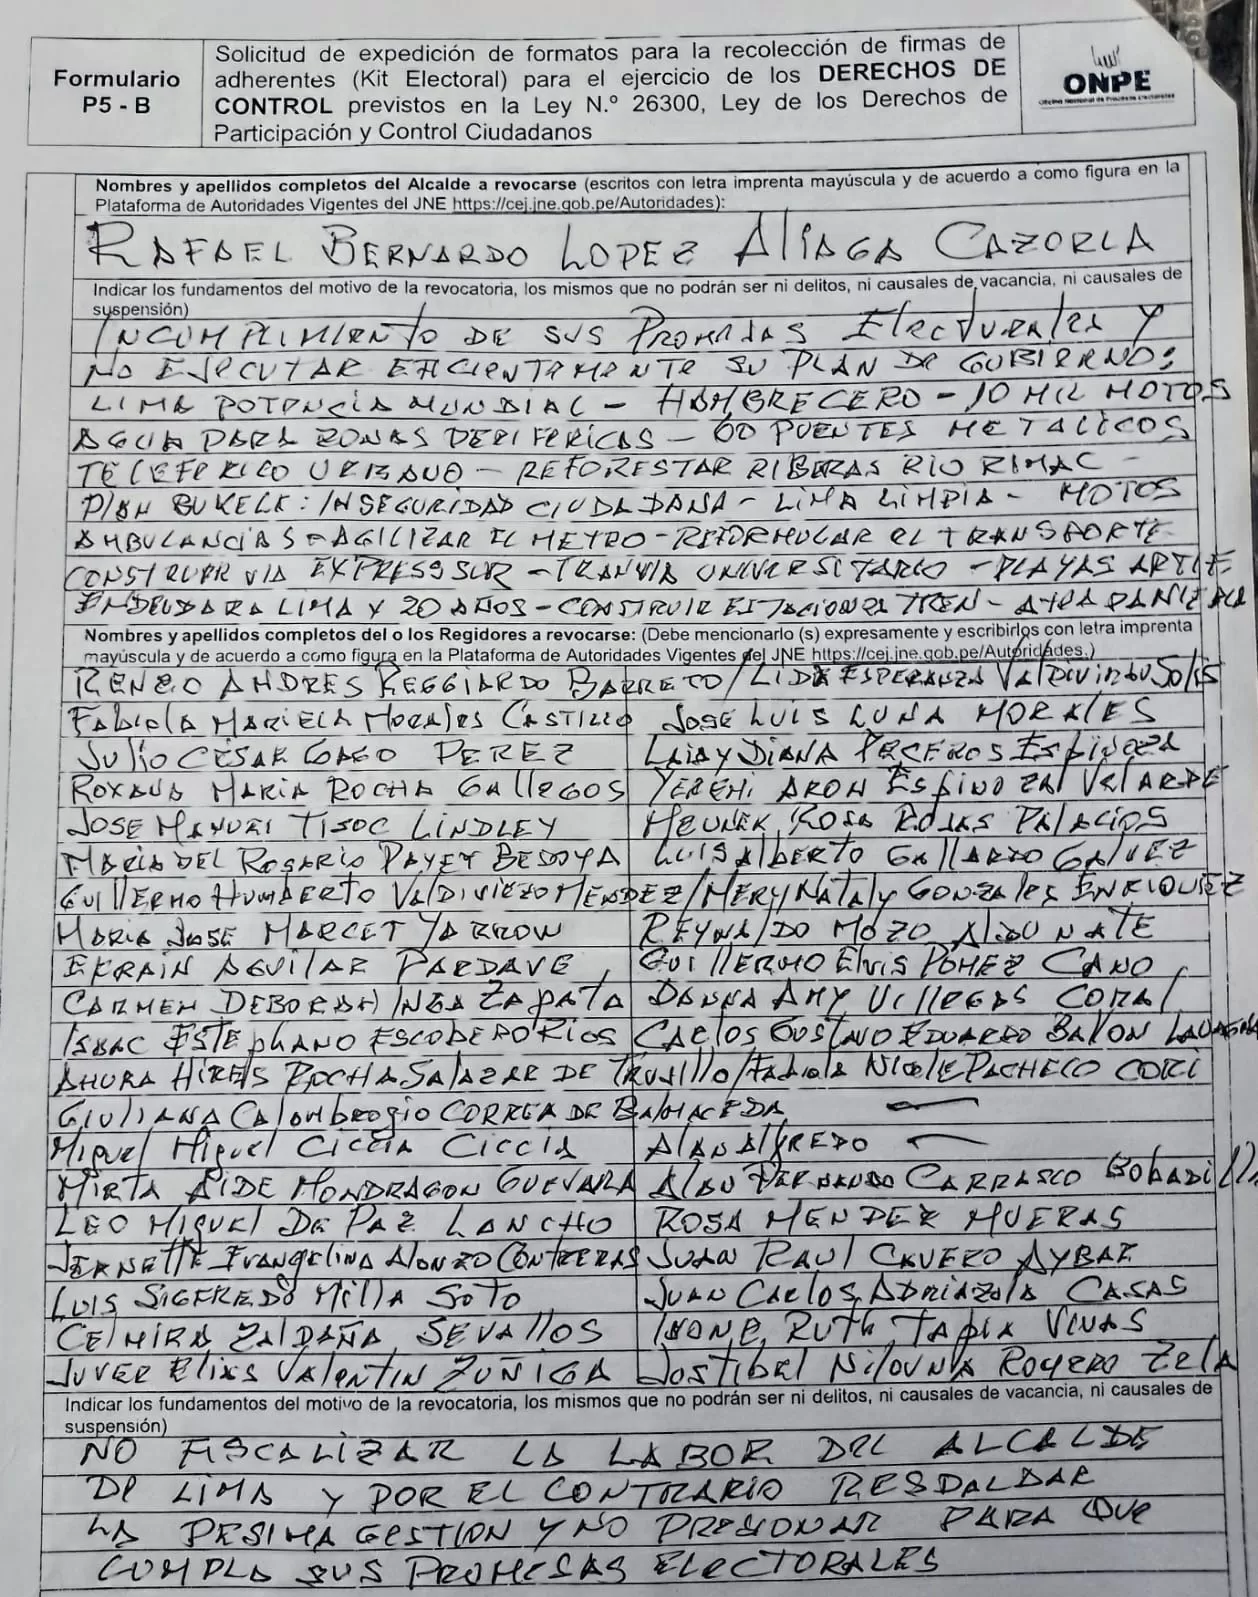 Formulario
P5 - B
Solicitud de expedición de formatos para la recolección de firmas de
adherentes (Kit Electoral) para el ejercicio de los DERECHOS DE
CONTROL previstos en la Ley N.º 26300, Ley de los Derechos de
Participación y Control Ciudadanos
ONPE
Oficina Nacional de Procesos Electorales
Nombres y apellidos completos del Alcalde a revocarse (escritos con letra imprenta mayúscula y de acuerdo a como figura en la
Plataforma de Autoridades Vigentes del JNE https://cej.jne.gob.pe/Autoridades):
RAFAEL BERNARDO LOPEZ AliAGA CAZORLA
Indicar los fundamentos del motivo de la revocatoria, los mismos que no podrán ser ni delitos, ni causales de vacancia, ni causales de
suspensión)
INCUMPLIMIENTO DE SUS PROMESAS ElecTURALES Y
NO EJECUTAR EFICIENTEMENTE SU PLAN DE GOBIERNO:
LIMA POTENCIA MUNDIAL - HAMBRE CERO - 10 MIL MOTOS
AGUA PARA ZONAS PERIFERICAS - 60 PUENTES METALICOS
TELEFERICO URBANO - REFORESTAR RIBERAS RIO RIMAC -
PlAN BUKELE: INSEGURIDAD CIUDADANA - LIMA LIMPIA - MOTOS
AMBULANCIAS - AGILIZAR EL METRO - REFORMULAR EL TRANSPORTE
CONSTRUIR VIA EXPRESS SUR - TRANVIA UNIVERSITARIO - PLAYAS ARTIF
ENDEUDAR A LIMA X 20 AÑOS - CONSTRUIR ESTACIONES TREN -
Nombres y apellidos completos del o los Regidores a revocarse: (Debe mencionarlo (s) expresamente y escribirlos con letra imprenta
mayúscula y de acuerdo a como figura en la Plataforma de Autoridades Vigentes del JNE https://cej.jne.gob.pe/Autoridades.)
RENZO ANDRES REGGIARDO BARRETO / LIDA ESPERANZA ValDIVINO SOlIS
FabiOla MARIELA MORAlES CASTILLO JOSE LUIS LUNA MORAlES
JUliO CÉSAR GAGO PEREZ LAIDY DIANA PECEROS ESPINOZA
ROXANA MARIA ROCHA GAllEGOS YEREMI ARON ESPINOZA VElARDE
JOSE MANUEl TISOC LINDLEY MEUNER ROSA ROJAS PAlACIOS
MARIA DEL ROSARIO PAYET BEDOYA LUIS AlBERTO GAllARDO GALVEZ
GUIllERMO HUMBERTO VAlDIVIEZO MENDEZ / MERY NATALY GONZAlES ENRIQUEZ
MARIA JOSE MARCET YARROW REYNAlDO MOZO AlDUNATE
EFRAIN AGUILAR PARDAVE GUIllERMO ElVIS POMEZ CANO
CARMEN DEBORAH INGA ZAPATA DANNA AMY VIllEGAS CORAl
ISAAC ESTEPHANO ESCOBEDO RIOS CARLOS GUSTAVO EDUARDO BALON
AHURA HIRES ROCHA SALAZAR DE TRUJIllO / FABIOLA NICOLE PACHECO CORI
GIULIANA CAlOMBROGIO CORREA DE BAlMACEDA —
Miguel Miguel CICCIA CICCIA AlAN AlFREDO —
MIRTA AIDE MONDRAGON GUEVARA AlAN FERNANDO CARRASCO BOBADIlla
LEO MIGUEl DE PAZ LANCHO ROSA MENDEZ MUERAS
JERNETTE EVANGELINA AlONZO CONTRERAS JUAN RAUl CAVERO AYBAR
LUIS SIGFREDO MIllA SOTO JUAN CARLOS ADRIAZOLA CASAS
CElMIRA ZAlDAÑA SEVAllOS IVONE RUTH TAPIA VIVAS
JUVER ElIAS VALENTIN ZUÑIGA JOSTIBEL NILOVNA ROMERO ZELA
Indicar los fundamentos del motivo de la revocatoria, los mismos que no podrán ser ni delitos, ni causales de vacancia, ni causales de
suspensión)
NO FISCALIZAR LA LABOR DEL ALCALDE
DE LIMA Y POR EL CONTRARIO RESPALDAR
LA PESIMA GESTION Y NO PRESIONAR PARA QUE
CUMPLA SUS PROMESAS ELECTORALES